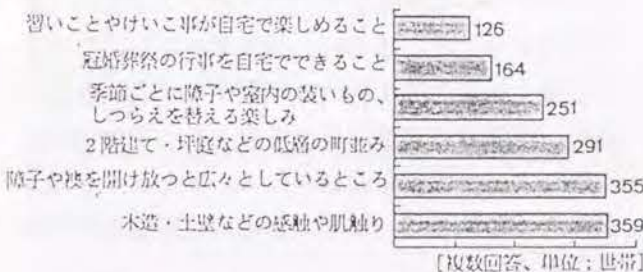 習いことやけいこ事が自宅で楽しめること 126
冠婚葬祭の行事を自宅でできること 164
季節ごとに障子や室内の装いもの、
しつらえを替える楽しみ 251
2階建て・坪庭などの低層の町並み 291
障子や襖を開け放つと広々としているところ 355
木造・土壁などの感触や肌触り 359
[複数回答、単位:世帯]